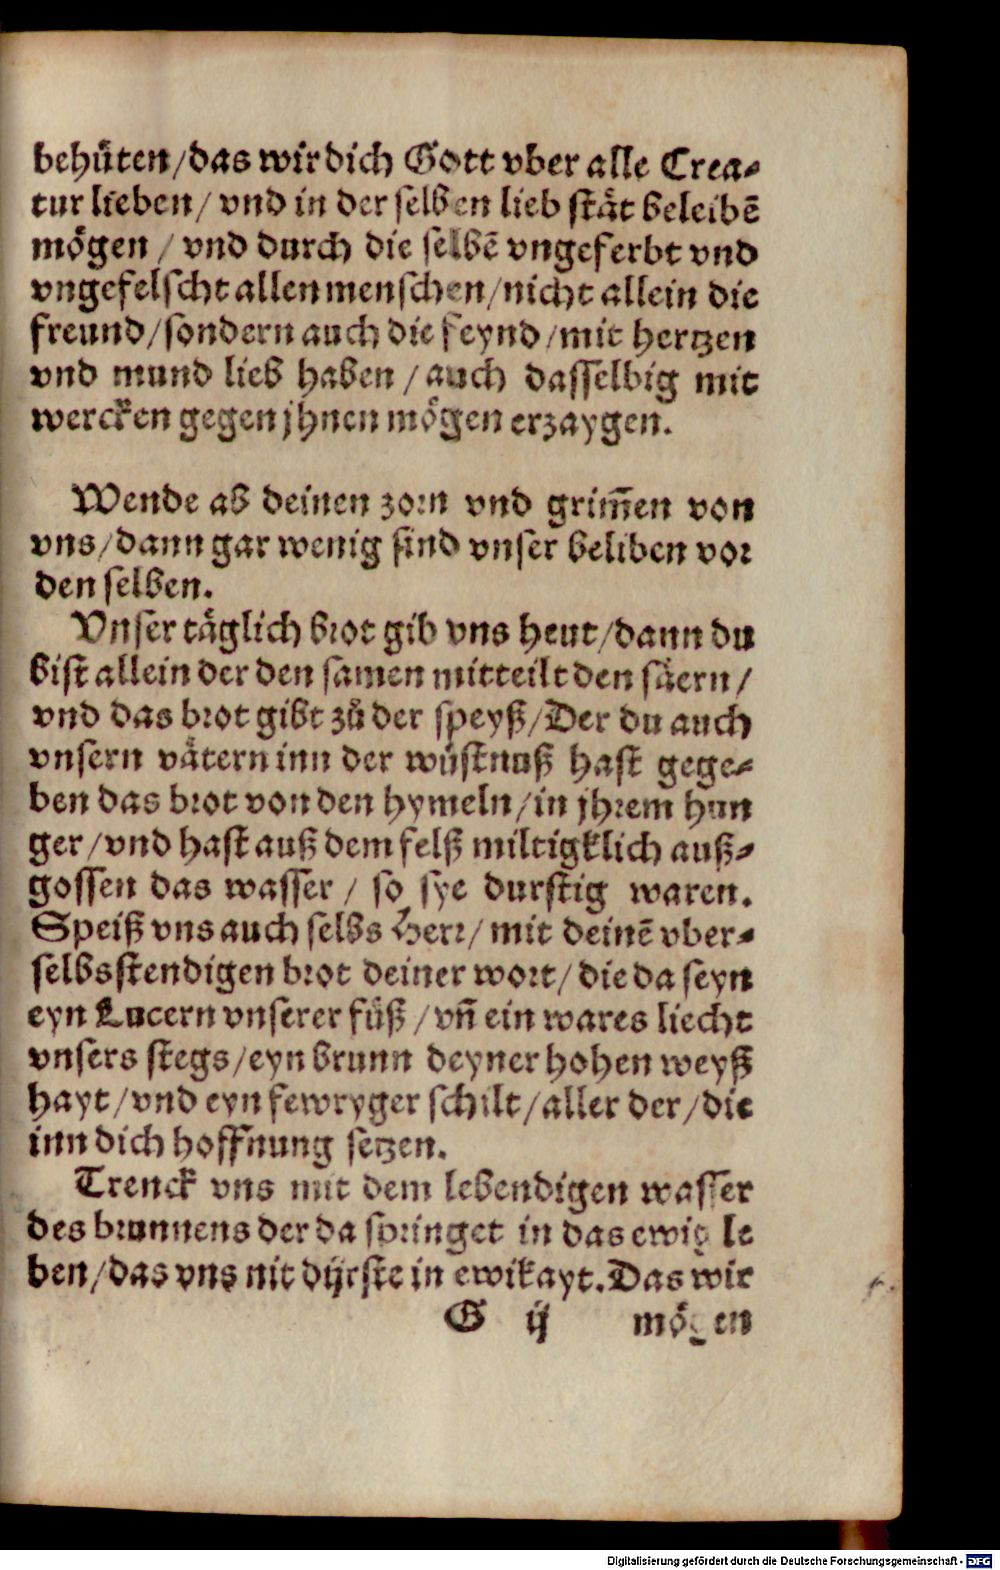 behuͤten/das wir dich Gott vber alle Crea-
tur lieben/ vnd in der selben lieb staͤt beleibē
moͤgen / vnd durch die selbē vngeferbt vnd
vngefelscht allen menschen/nicht allein die
freund/sondern auch die feynd/mit hertzen
vnd mund lieb haben / auch dasselbig mit
wercken gegen jhnen moͤgen erzaygen.
Wende ab deinen zorn vnd grim̄en von
vns/dann gar wenig sind vnser beliben vor
den selben.
Vnser taͤglich brot gib vns heut/dann du
bist allein der den samen mitteilt den saͤern/
vnd das brot gibt zů der speyß/Der du auch
vnsern vaͤtern inn der wuͤstnuß hast gege-
ben das brot von den hymeln/in jhrem hun
ger/vnd hast auß dem felß miltigklich auß-
gossen das wasser / so sye durstig waren.
Speiß vns auch selbs Herr/ mit deinē vber-
selbsstendigen brot deiner wort/ die da seyn
eyn Lucern vnserer fuͤß /vn̄ ein wares liecht
vnsers stegs/eyn brunn deyner hohen weyß
hayt/vnd eyn fewryger schilt/aller der/die
inn dich hoffnung setzen.
Trenck vns mit dem lebendigen wasser
des brunnens der da springet in das ewig le
ben/das vns nit dyͤrste in ewikayt.Das wir
G ij moͤgen
Digitalisierung gefördert durch die Deutsche Forschungsgemeinschaft - DFG